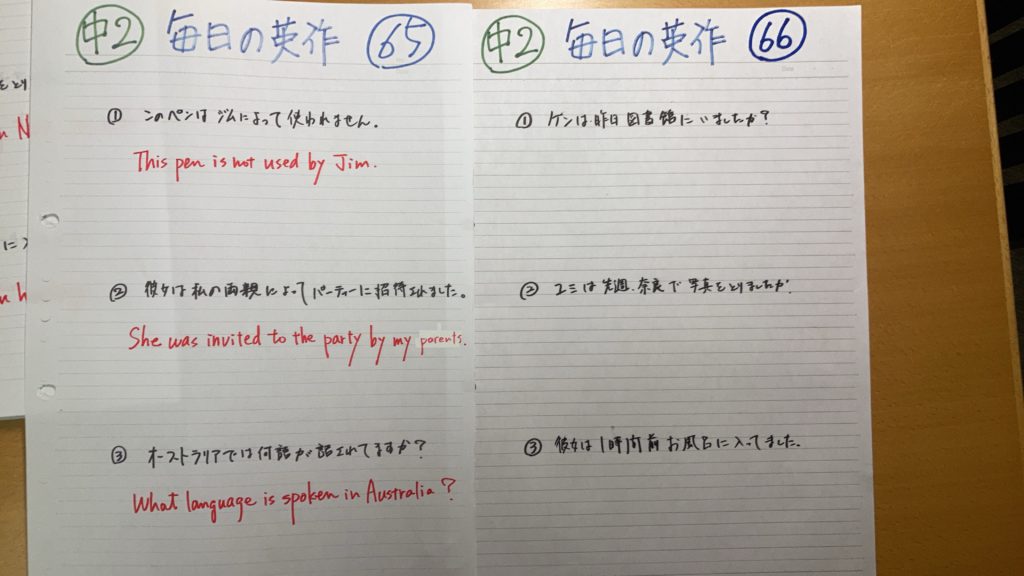 中2 毎日の英作 65
① このペンはジムによって使われません。
This pen is not used by Jim.
② 彼女は私の両親によってパーティーに招待されました。
She was invited to the party by my parents.
③ オーストラリアでは何語が話されてますか?
What language is spoken in Australia?
中2 毎日の英作 66
① ケンは昨日図書館にいましたか?
② ユミは先週、奈良で写真をとりましたか?
③ 彼女は1時間前お風呂に入ってました。
をとり
n N
に入
n h